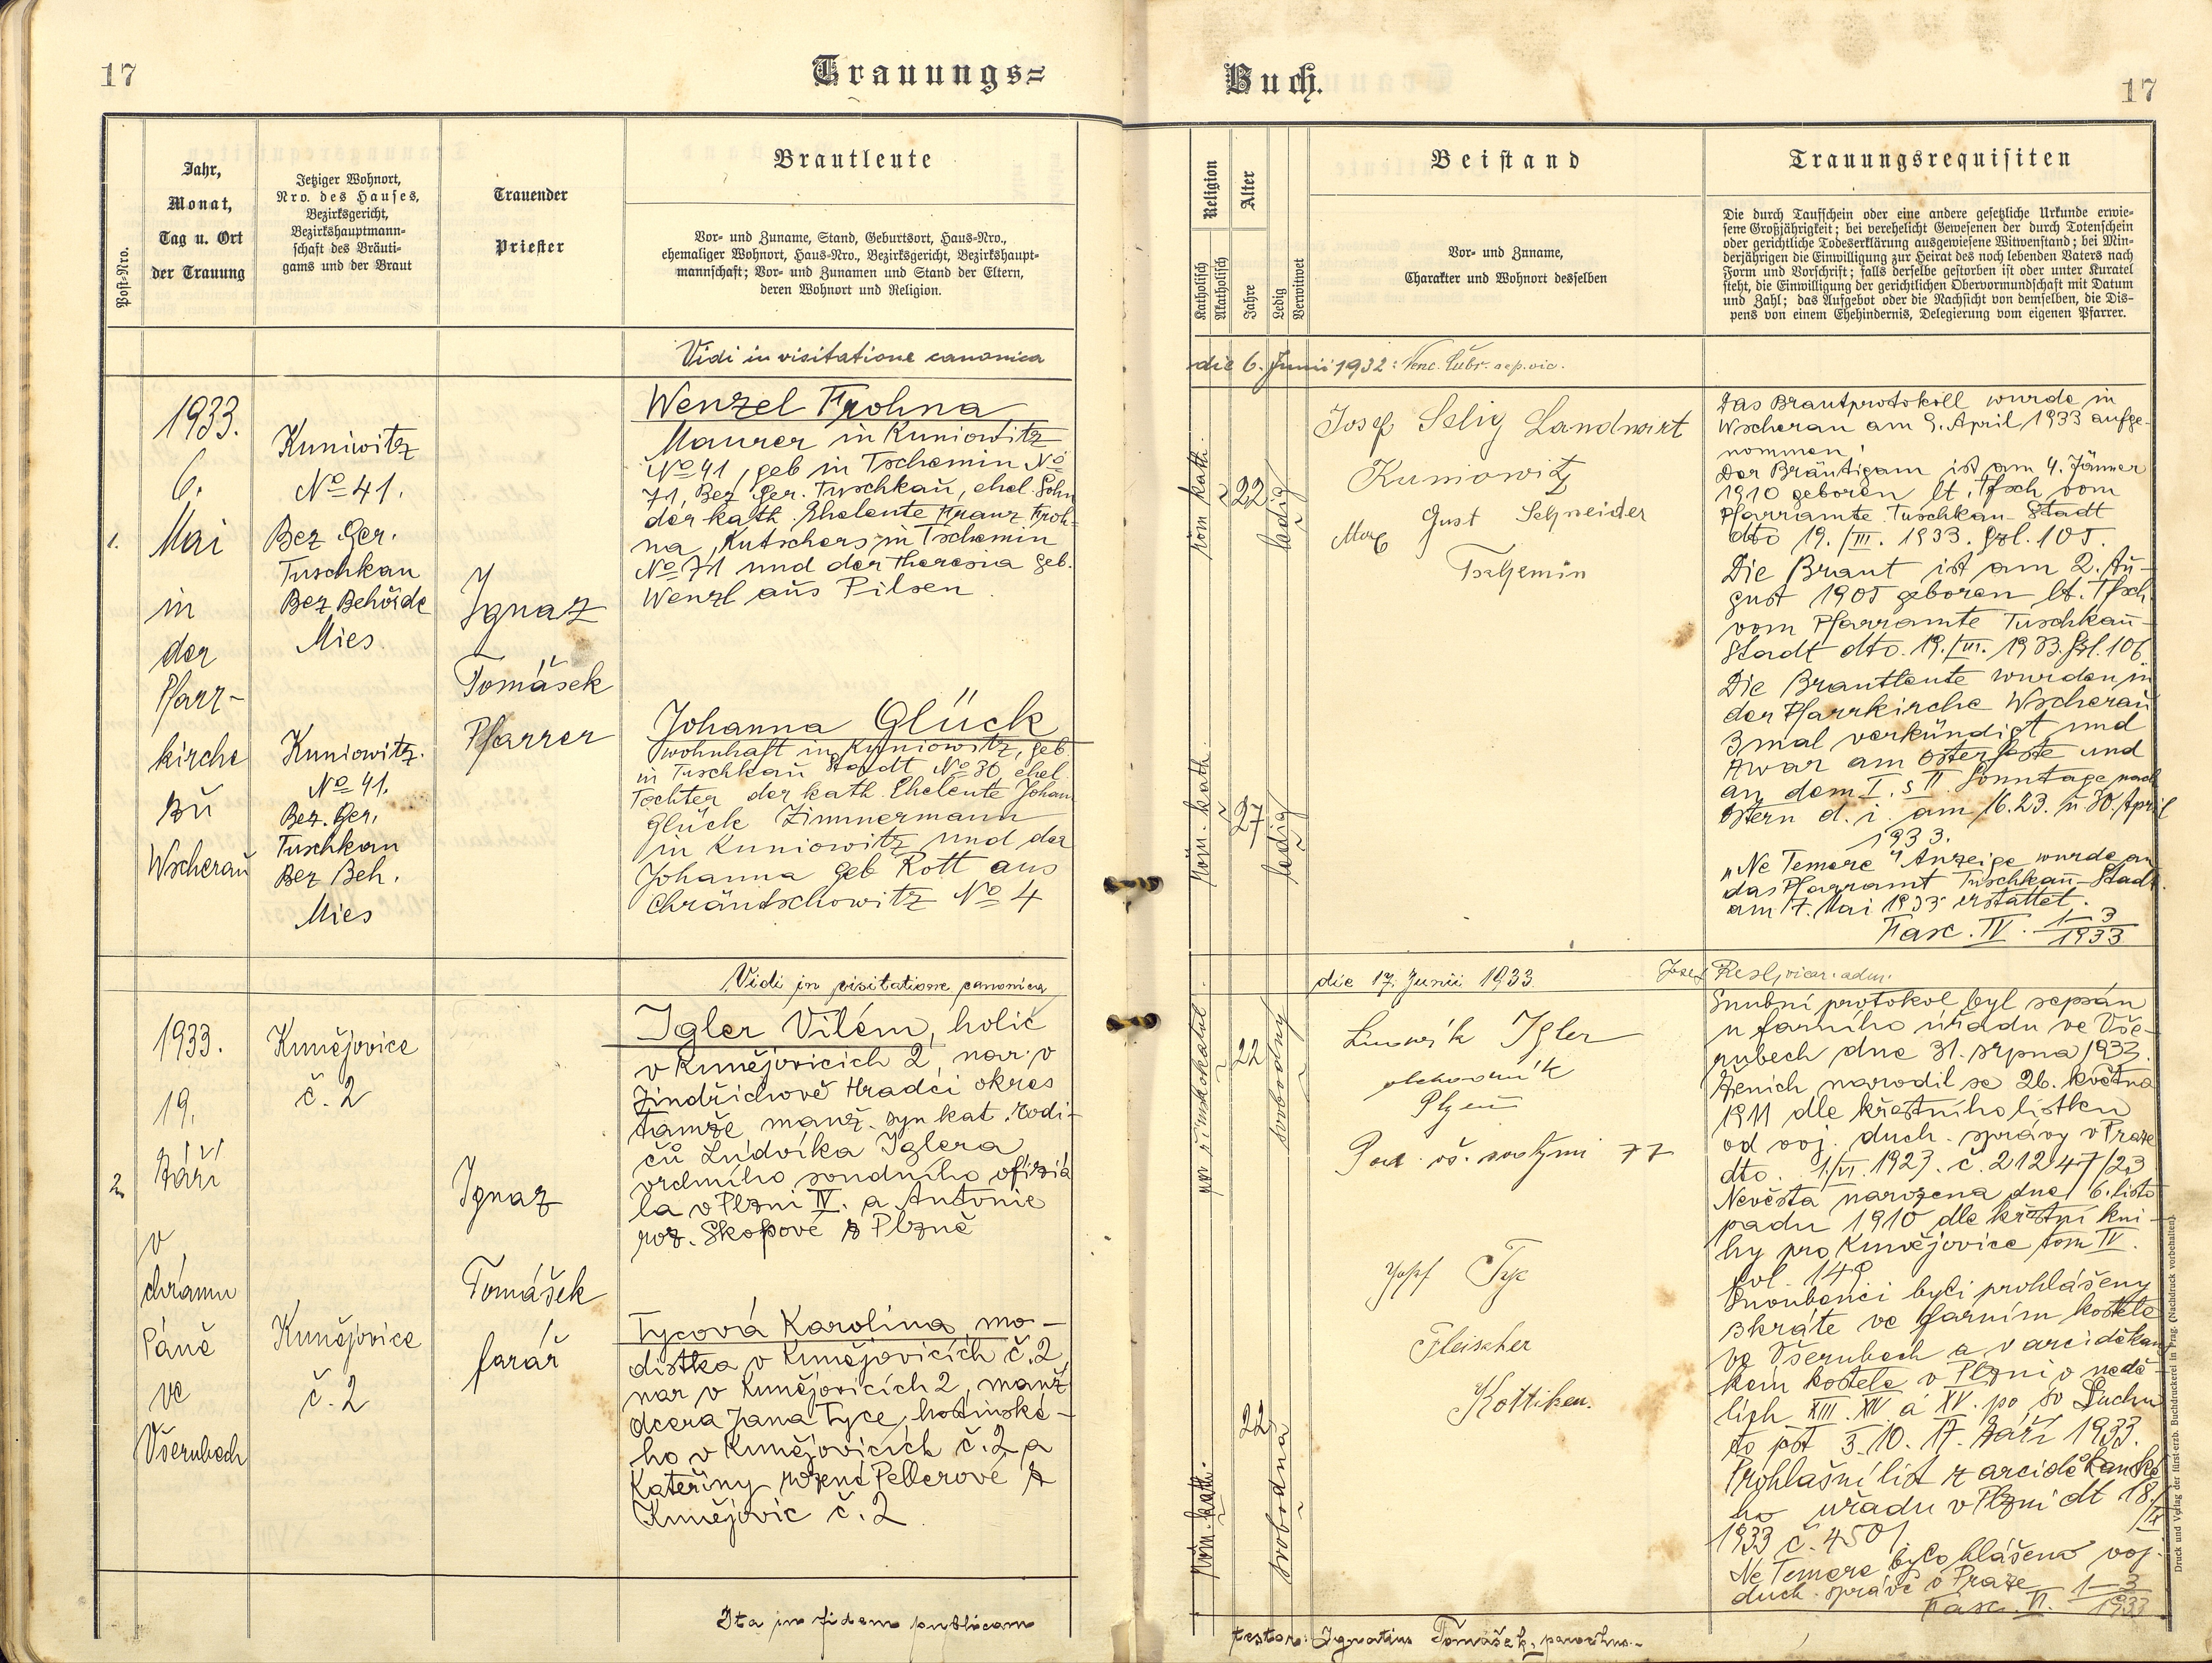 17
Trauungs=
Jahr,
Monat,
Tag u. Ort
der Trauung
Jetziger Wohnort,
Nro. des Hauses,
Bezirksgericht,
Bezirkshauptmann-
schaft des Bräuti-
gams und der Braut
Trauender
Priester
Brautleute
Vor- und Zuname, Stand, Geburtsort, Haus-Nro.,
ehemaliger Wohnort, Haus-Nro., Bezirksgericht, Bezirkshaupt-
mannschaft; Vor- und Zunamen und Stand der Eltern,
deren Wohnort und Religion.
Post-Nro.
Vidi in visitatione canonica
1.
1933.
6.
Mai
in
der
Pfarr-
kirche
zu
Wscherau
Kuniwitz
No 41.
Bez Ger.
Tuschkau
Bez Behörde
Mies
Kuniowitz.
No 41.
Bez. Ger.
Tuschkau
Bez Beh.
Mies
Ignaz
Tomášek
Pfarrer
Wenzel Frohna
Maurer in Kuniowitz
No 41, geb in Tschemin No
71, Bez. Ger. Tuschkau, ehel. Sohn
der kath. Eheleute Franz Froh-
na, Kutschers in Tschemin
No 71 und der Theresia geb.
Wenzl aus Pilsen
Johanna Glück
wohnhaft in Kuniowitz, geb
in Tuschkau Stadt No 30, ehel.
Tochter der kath. Eheleute Johann
Glück Zimmermann
in Kuniowitz und der
Johanna geb Rott aus
Chräntschowitz No 4
Vidi in visitatione canonica
2.
1933.
19.
Září
v
chrámu
Páně
ve
Všerubech
Kunějovice
č. 2
Kunějovice
č. 2
Ignaz
Tomášek
farář
Igler Vilém, holič
v Kunějovicích 2, nar. v
Jindřichově Hradci okres
tamže manž. syn kat. rodi-
čů Ludvíka Iglera
vrchního soudního oficiá
la v Plzni IV. a Antonie
roz. Skopové z Plzně
Tycová Karolina, mo-
distka v Kunějovicích č. 2
nar v Kunějovicích 2, manž
dcera Jana Tyce, hostinské-
ho v Kunějovicích č. 2 a
Kateřiny rozené Pellerové z
Kunějovic č. 2
Ita in fidem publicam
Buch.
17
Religion
Alter
Katholisch
Akatholisch
Jahre
Ledig
Verwitwet
Beistand
Vor- und Zuname,
Charakter und Wohnort desselben
Trauungsrequisiten
Die durch Taufschein oder eine andere gesetzliche Urkunde erwie-
sene Großjährigkeit; bei verehelicht Gewesenen der durch Totenschein
oder gerichtliche Todeserklärung ausgewiesene Witwenstand; bei Min-
derjährigen die Einwilligung zur Heirat des noch lebenden Vaters nach
Form und Vorschrift; falls derselbe gestorben ist oder unter Kuratel
steht, die Einwilligung der gerichtlichen Obervormundschaft mit Datum
und Zahl; das Aufgebot oder die Nachsicht von demselben, die Dis-
pens von einem Ehehindernis, Delegierung vom eigenen Pfarrer.
die 6. Junii 1932:
röm kath.
22
ledig
röm. kath.
27
ledig
Josef Selig Landwirt
Kuniowitz
Gust Schneider
Tschemin
Das Brautprotokoll wurde in
Wscherau am 9. April 1933 aufge-
nommen!
Der Bräutigam ist am 4. Jänner
1910 geboren lt. Tfsch vom
Pfarramte Tuschkau-Stadt
dto 19./III. 1933. Gzl. 105.
Die Braut ist am 2. Au-
gust 1905 geboren lt. Tfsch
vom Pfarramte Tuschkau-
Stadt dto. 19./III. 1933. Gzl. 106.
Die Brautleute wurden in
der Pfarrkirche Wscherau
3mal verkündigt und
zwar am Osterfeste und
an dem I. s II. Sonntage nach
Ostern d. i. am 16. 23. u 30. April
1933.
„Ne Temere" Anzeige wurde an
das Pfarramt Tuschkau-Stadt
am 7. Mai 1933 erstattet.
Fasc. IV. 1-3
1933
die 17. Junii 1933.
Josef Resl, vicar. adm.
22
svobodný
röm. kath.
22
svobodná
Igler
obchodník
Plzeň
77
Josef Tyc
Fleischer
Kottiken.
Snubní protokol byl sepsán
u farního úřadu ve Vše-
rubech dne 31. srpna 1933.
Ženich narodil se 26. května
1911 dle křestního lístku
od voj. duch. správy v Praze
dto. 1/VI. 1923. č. 21247/23
Nevěsta narozena dne 6. listo
padu 1910 dle křestní kni-
hy pro Kunějovice tom IV.
fol. 149.
Snoubenci byli prohlášeny
3kráte ve farním kostele
ve Všerubech a v arciděkan
kém kostele v Plzni v nedě-
lích XIII. XIV. a XV. po sv Duchu
to jest 3. 10. 17. září 1933.
Prohlašní list z arciděkanské
ho uřadu v Plzni dt 18./IX
1933 č. 450/
Ne Temere bylo hlášeno voj.
duch. správě v Praze
Fasc. VI. 1-3
1933
testor: Ignatius Tomášek, parochus.
Druck und Verlag der fürst-erzb. Buchdruckerei in Prag. (Nachdruck vorbehalten).